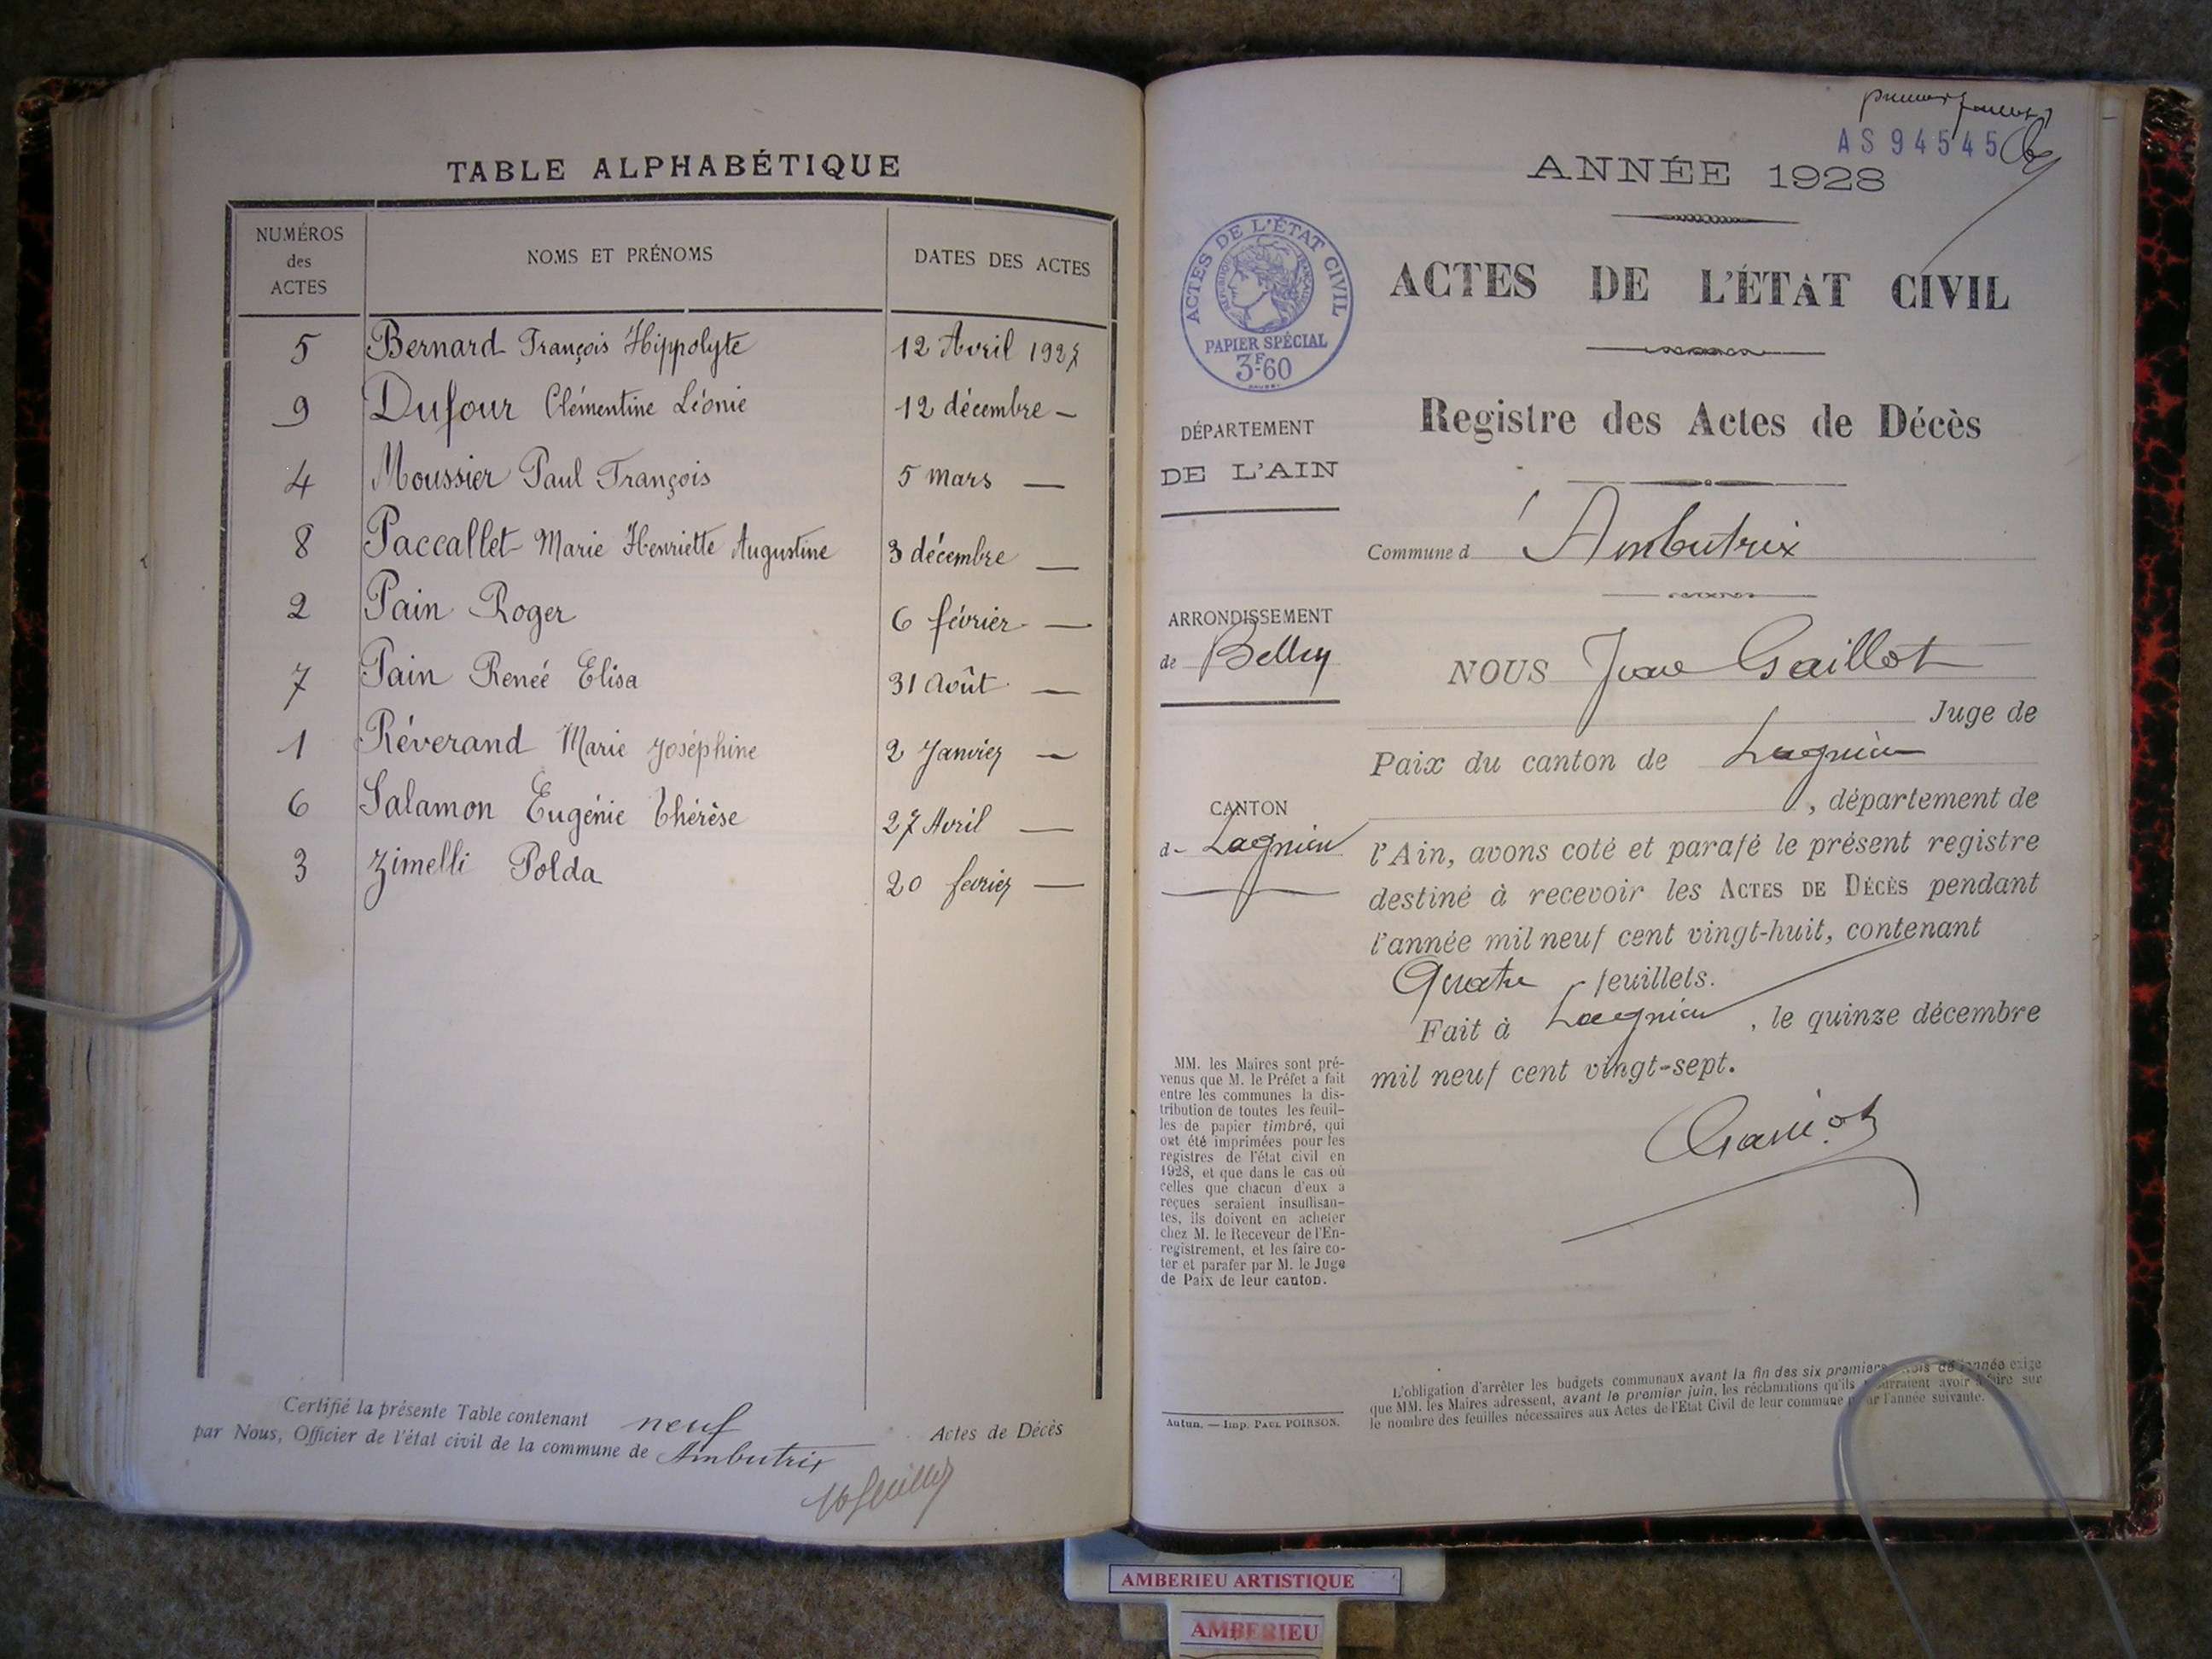 TABLE ALPHABÉTIQUE
NUMÉROS des ACTES
NOMS ET PRÉNOMS
DATES DES ACTES
5 Bernard François Hippolyte 12 Avril 1927
9 Dufour Clémentine Léonie 12 décembre —
4 Moussier Paul François 5 mars —
8 Paccallet Marie Henriette Augustine 3 décembre —
2 Pain Roger 6 février —
7 Pain Reneé Elisa 31 Août —
1 Réverand Marie Joséphine 2 Janvier —
6 Salamon Eugénie Thérèse 27 Avril —
3 Zimelli Polda 20 fevrier —
Certifié la présente Table contenant neuf Actes de Décès
par Nous, Officier de l'état civil de la commune de Ambutrix
AS 94545
ANNÉE 1928
ACTES DE L'ÉTAT CIVIL
RÉPUBLIQUE FRANÇAISE
PAPIER SPÉCIAL
3F.60
ACTES DE L'ÉTAT CIVIL
Registre des Actes de Décès
DÉPARTEMENT
DE L'AIN
Commune d'Ambutrix
ARRONDISSEMENT
de Belley
CANTON
d- Lagnieu
NOUS Jean Gaillot
Juge de
Paix du canton de Lagnieu
, département de
l'Ain, avons coté et parafé le présent registre
destiné à recevoir les ACTES DE DÉCÈS pendant
l'année mil neuf cent vingt-huit, contenant
Quatre feuillets.
Fait à Lagnieu, le quinze décembre
mil neuf cent vingt-sept.
MM. les Maires sont pré-
venus que M. le Préfet a fait
entre les communes la dis-
tribution de toutes les feuil-
les de papier timbré, qui
ont été imprimées pour les
registres de l'état civil en
1928, et que dans le cas où
celles que chacun d'eux a
reçues seraient insuffisan-
tes, ils doivent en acheter
chez M. le Receveur de l'En-
registrement, et les faire co-
ter et parafer par M. le Juge
de Paix de leur canton.
Autun. — Imp. PAUL POIRSON.
L'obligation d'arrêter les budgets communaux avant la fin des six premiers mois de l'année exige
que MM. les Maires adressent, avant le premier juin, les réclamations qu'ils pourraient avoir à faire sur
le nombre des feuilles nécessaires aux Actes de l'Etat Civil de leur commune pour l'année suivante.
AMBERIEU ARTISTIQUE
AMBERIEU